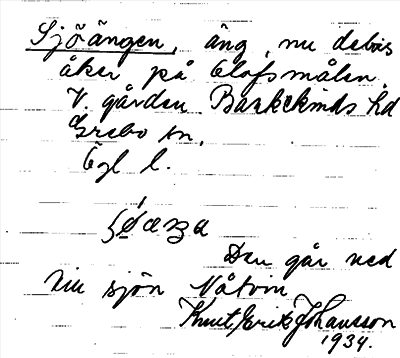 Sjöängen, äng, nu delvis
åker på Olofsmålen,
V. gården Bankekinds hd
Grebo sn,
Ögl l.
Den går ned
till sjön Nåtvin
Knut Erik Johansson
1934.